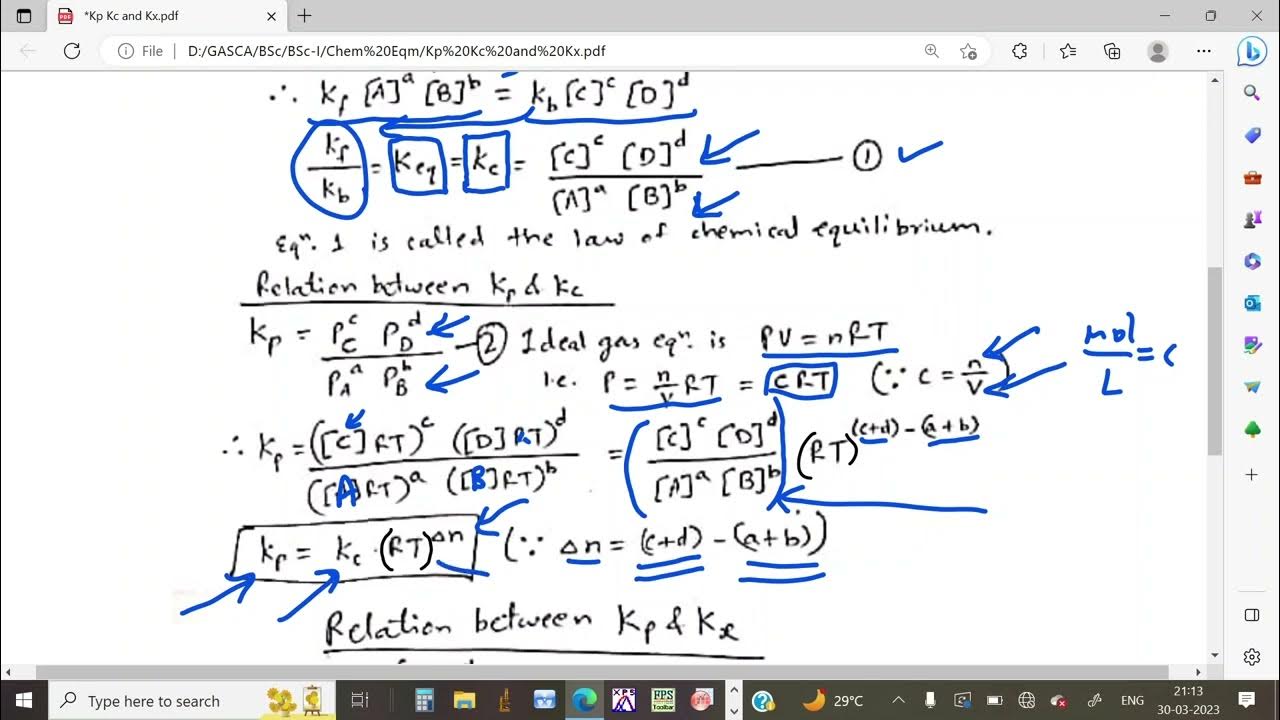 *Kp Kc and Kx.pdf
File D:/GASCA/BSc/BSc-I/Chem%20Eqm/Kp%20Kc%20and%20Kx.pdf
∴ k_f [A]^a [B]^b = k_b [C]^c [D]^d
k_f/k_b = K_eq = k_c = [C]^c [D]^d / [A]^a [B]^b —— ①
Eqn. 1 is called the law of chemical equilibrium.
Relation between Kp & Kc
Kp = P_C^c P_D^d / P_A^a P_B^b — ② Ideal gas eqn. is PV = nRT
i.e. P = n/V RT = CRT (∵ C = n/V) mol/L = C
∴ Kp = ([C]RT)^c ([D]RT)^d / ([A]RT)^a ([B]RT)^b = ([C]^c [D]^d / [A]^a [B]^b) (RT)^(c+d)-(a+b)
Kp = Kc · (RT)^Δn (∵ Δn = (c+d) - (a+b))
Relation between Kp & Kx
Type here to search
XPS
FPS
Toolbar
29°C
ENG
21:13
30-03-2023